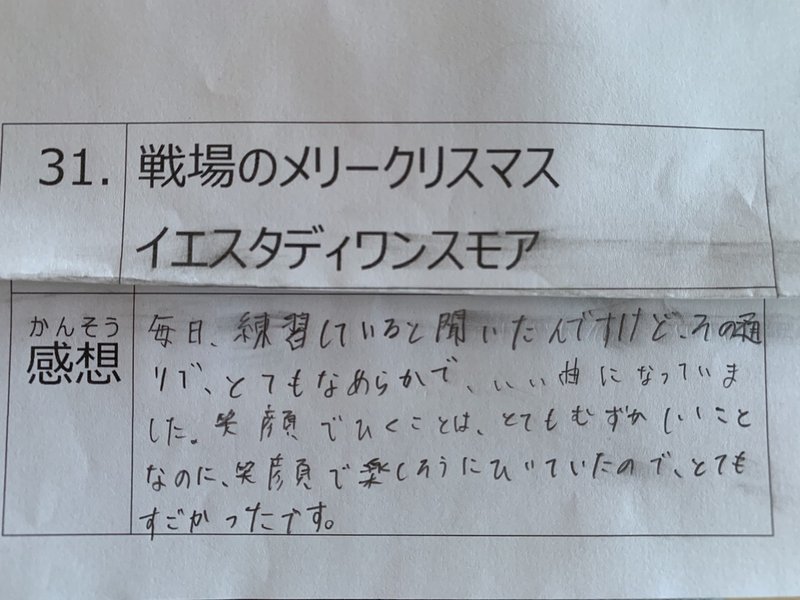 31. 戦場のメリークリスマス
イエスタディワンスモア
かんそう
感想
毎日、練習していると聞いたんですけど、その通
りで、とてもなめらかで、いい曲になっていま
した。笑顔でひくことは、とてもむずかしいこと
なのに、笑顔で楽しそうにひいていたので、とても
すごかったです。